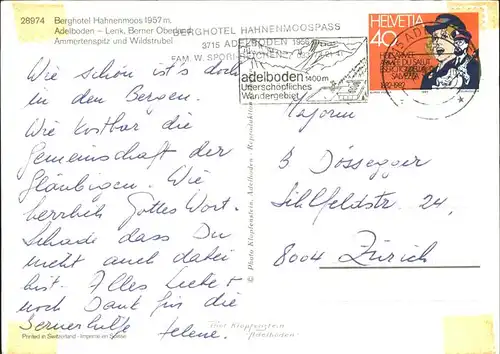 28974 Berghotel Hahnenmoos 1957 m.
Adelboden – Lenk, Berner Oberland
Ammertenspitz und Wildstrubel
BERGHOTEL HAHNENMOOSPASS
3715 ADELBODEN
FAM. W. SPORI
adelboden
1400m
Unerschöpfliches
Wandergebiet
HELVETIA
40
1882-1982
Wie schön ist's doch
in den Bergen.
Wie kostbar die
Gemeinschaft der
Gläubigen. Wie
herrlich Gottes Wort.
Schade dass Du
nicht auch dabei
bist. Alles Liebe &
noch Dank für die
Helene.
Majorin
B Dössegger
Sihlfeldstr. 24,
8004 Zürich
© Photo Klopfenstein, Adelboden - Reproduktion
Klopfenstein
Adelboden
Printed in Switzerland - Imprimé en Suisse